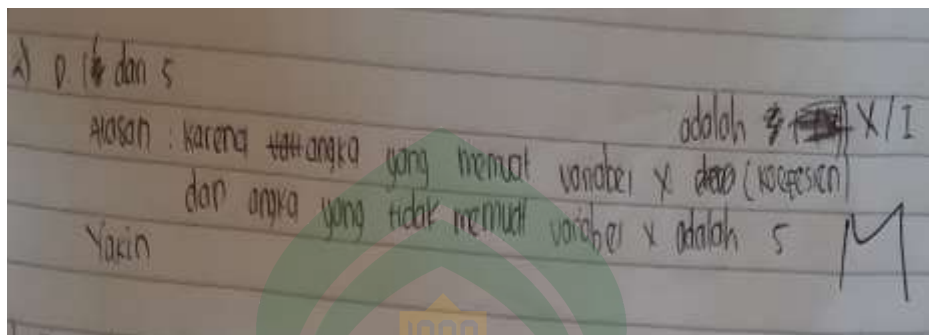 2) D. dan 5
adalah X/I
Alasan : Karena angka yang memuat variabel x (koefesien)
dan angka yang tidak memuat variabel x adalah 5 M
Yakin